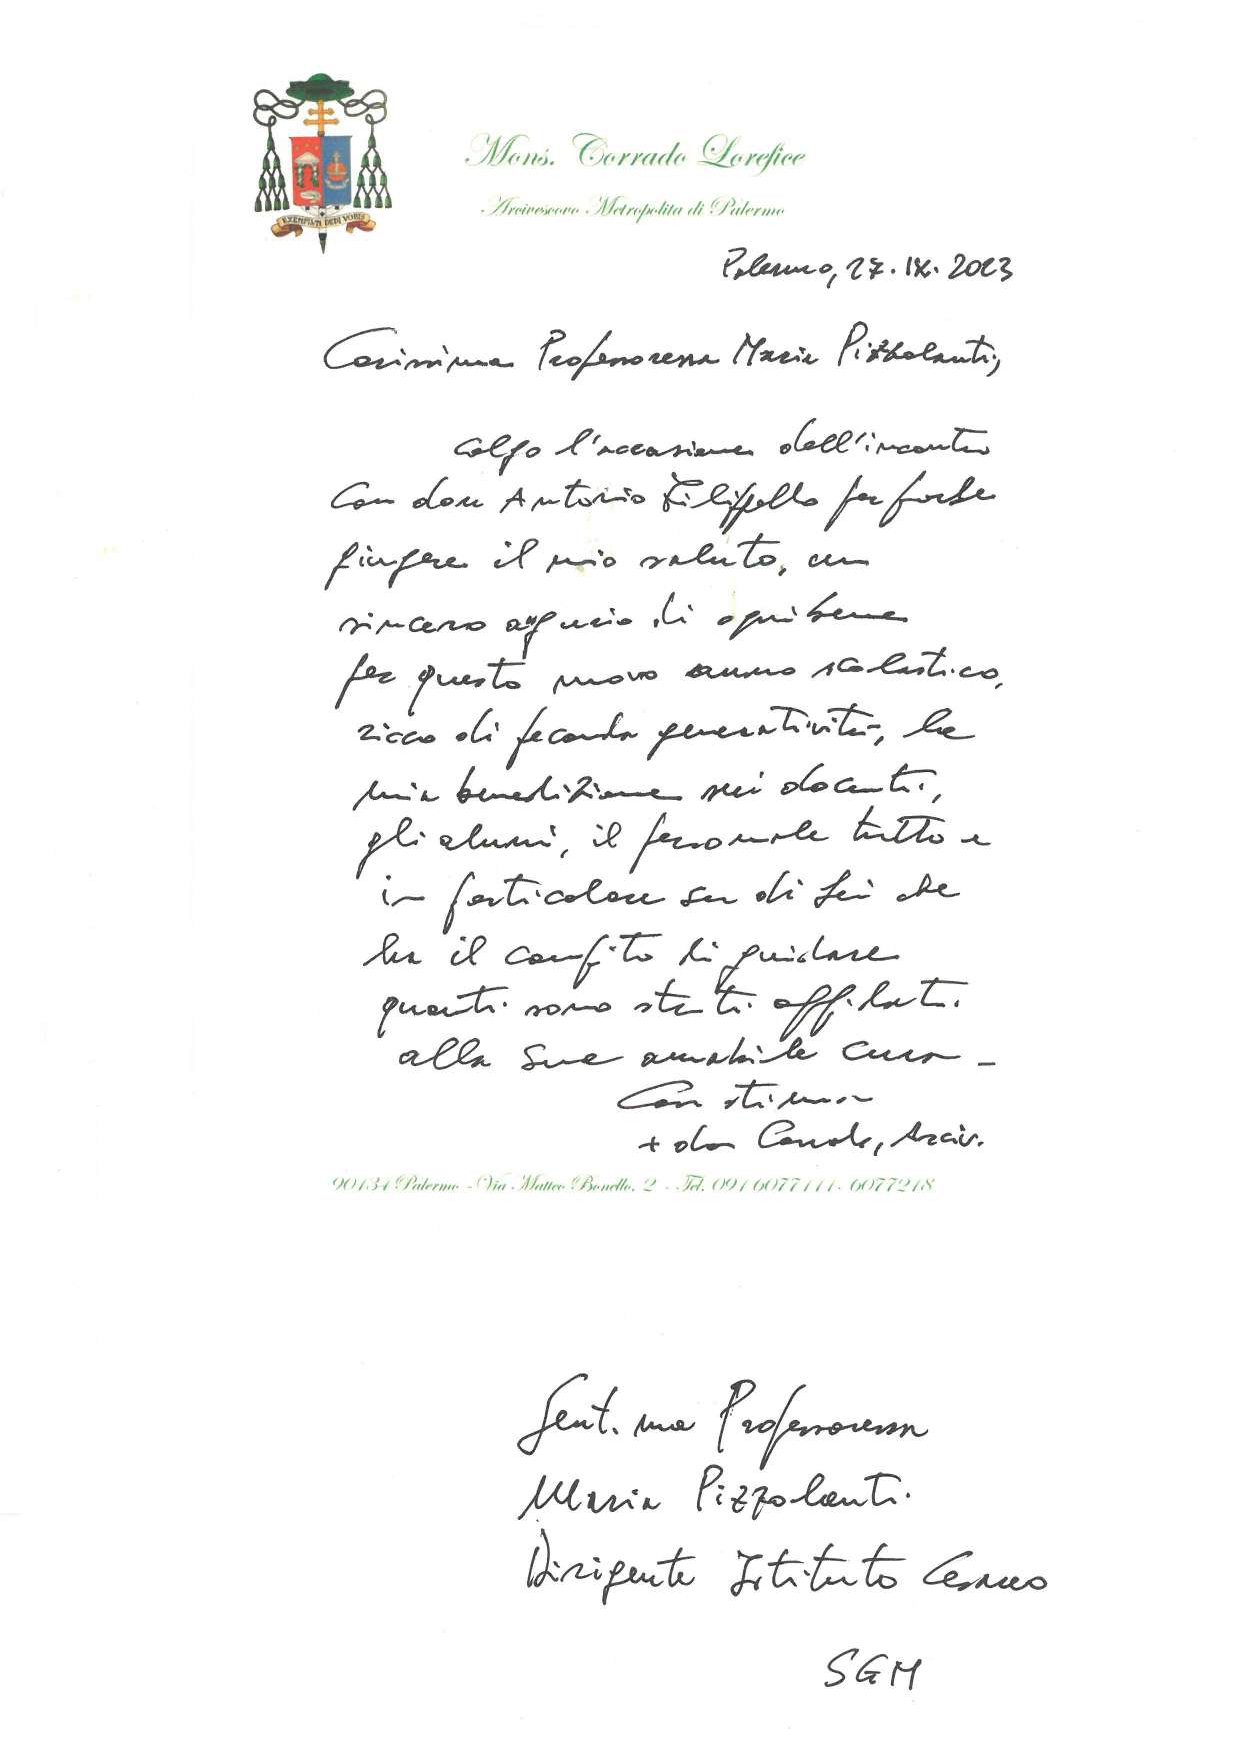 EXEMPLUM DEDI VOBIS
Mons. Corrado Lorefice
Arcivescovo Metropolita di Palermo
Palermo, 27.IX.2023
Carissima Professoressa Maria Pizzolanti,
colgo l'occasione dell'incontro
con don Antonio Filippello per farLe
giungere il mio saluto, un
sincero augurio di ogni bene
per questo nuovo anno scolastico,
ricco di feconda generatività, la
mia benedizione sui docenti,
gli alunni, il personale tutto e
in particolare su di Lei che
ha il compito di guidare
quanti sono stati affidati
alla Sua amabile cura -
Con stima
+ don Corrado, Arciv.
90134 Palermo - Via Matteo Bonello, 2 - Tel. 091 6077111 - 6077218
Gent.ma Professoressa
Maria Pizzolanti
Dirigente Istituto Cesareo
SGM